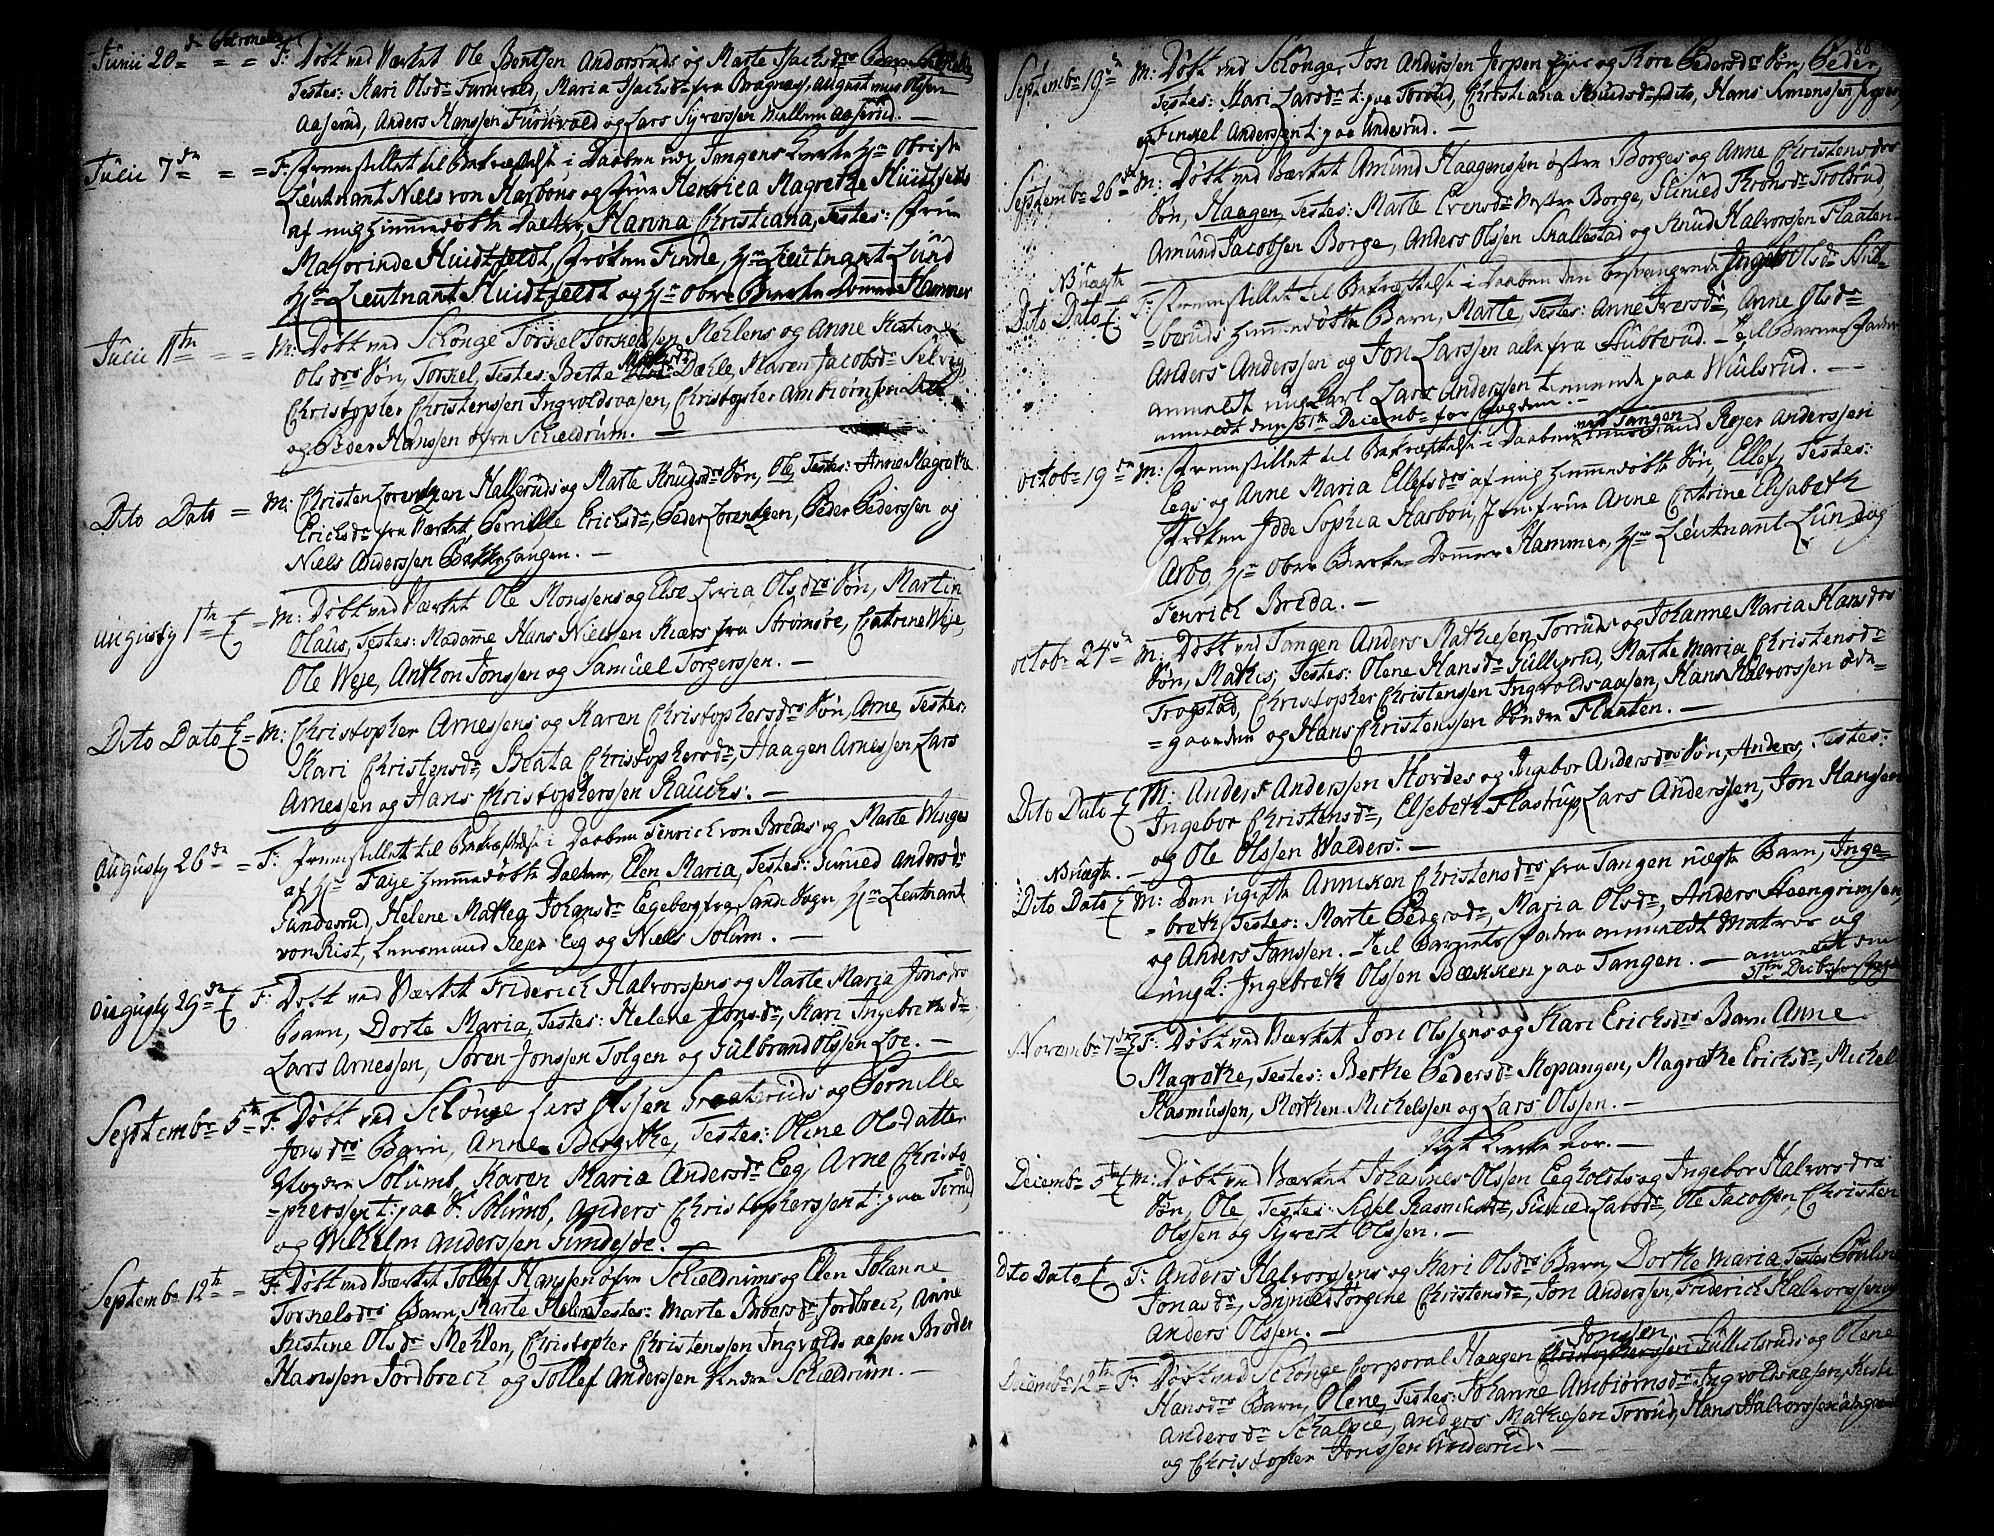 Junii 20de = = F: Døbt ved Værket Ole Bentsen Andorsruds og Marte Isachsdrs Barn
Testes: Kari Olsdr Furuvald, Maria Isachsdr fra Bragnæs, Augustinus Olssen
Aaserud, Anders Hanssen Furuvald og Lars Syverssen Aaserud. —
Julii 7de = = F: Fremstillet til Bekræftelse i Daaben udj Tangens Kirke Hr Obriste
Lieutnant Niels von Harbous og Frue Henrica Magrethe Huidtfelds
af mig hiemmedøbte Datter, Hanna Christiana, Testes: Frue
Majorinde Huidtfeldt, Frøken Finde, Hr Lieutnant Lund
Hr Lieutnant Huidtfeldt og Hr Ober Berke Dommer Hammer
Julii 11te = = M: Døbt ved Schonge Torkel Torkelssen Mehlens og Anne Kirstine
Olsdrs Søn, Torkel, Testes: Berthe Dæhle, Maren Jacobsdr Selvig,
Christopher Christenssen Ingvoldsaasen, Christopher Ambiornsen
og Peder Hanssen øfre Schieldrum. —
Dito Dato = M: Christen Lorentzen Halleruds og Marte Knudsdrs Søn, Ole, Testes: Anne Magrethe
Erichsdr fra Værket Pernille Erichsdr, Peder Lorentzen, Peder Pederssen og
Niels Anderssen Bakke Tangen. —
Augusty 1te E = M: Døbt ved Værket Ole Monssens og Else Maria Olsdrs Søn, Martin
Olaus, Testes: Madame Hans Nielssen Kiærs fra Strømsøe, Catrine Weje,
Ole Weje, Anthon Jonssen og Samuel Torgerssen. —
Dito Dato E = M: Christopher Arnessens og Karen Christophersdrs Søn, Arne, Testes:
Kari Christensdr, Beata Christophersdr, Haagen Arnessen, Lars
Arnessen og Hans Christopherssen Rauchs. —
Augusty 26de = F: Fremstillet til Bekræftelse i Daaben Fenrich von Bredas og Marte Winges
af Hr Faije hiemmedøbte Datter, Elen Maria, Testes: Gunied Andersdr
Sunderud, Helene Mathea Johansdr Egeberg fra Sande Sogn, Hr Lieutnant
von Krist, Lensmand Rejer Eeg og Niels Solum. —
Augusty 29de E F: Døbt ved Værket Friderich Halvorssens og Marte Maria Jonsdrs
Barn, Dorte Maria, Testes: Helene Jonsdr, Kari Ingebretsdr
Lars Arnessen, Søren Jonssen Tolgen og Gulbrand Olssen Loe. —
Septembr 5te F: Døbt ved Schonge Lars Olssen Graateruds og Pernille
Jonsdrs Barn, Anne Bergethe, Testes: Oline Olsdatter
Nordre Solumb, Karen Maria Andersdr Eeg, Arne Christo-
pherssen t: paa S. Solumb, Anders Christopherssen t: paa Torud,
og Wilhelm Anderssen Sundesøe. —
Septembr 12te = F: Døbt ved Værket Tollef Hanssen øfre Schieldrums og Elen Johanne
Torkelsdrs Barn, Marte Helene Testes: Marte Brorsdr Jordbrech, Anne
Kirstine Olsdr Mehlen, Christopher Christenssen Ingvolds aasen Broder
Hanssen Jordbrech og Tollef Anderssen Søndre Schieldrum. —
88
Septembr 19de M: Døbt ved Schonge, Jon Anderssen Jerpen eye og Thore Pedersdrs Søn, Peder,
Testes: Kari Larsdr t: paa Torrud, Christiana Knudsdr dito, Hans Simenssen
og Finkel Anderssen t: paa Anderud. —
Septembr 26de M: Døbt ved Værket Amund Haagenssen østre Borges og Anne Christensdrs
Søn, Haagen, Testes: Marte Evensdr Vestre Borge, Gunied Thronsdr Trolsrud,
Amund Jacobsen Borge, Anders Olssen Skallestad og Knud Halvorssen Flaaten.
N B uægte
Dito Dato E F: Fremstillet til Bekræftelse i Daaben den besvangrede Ingeb Olsdr Stub-
beruds hiemmedøbte Barn, Marte, Testes: Anne Iversdr, Anne Olsdr
Anders Anderssen og Jon Larssen alle fra Stubberud. — Til Barne Fader
anmældt ung Karl Lars Anderssen tienende paa Wiulsrud. —
anmældt den 31te Decembr for Fogden. —
Octobr 19de M: Fremstillet til Bekræftelse i Daaben ved Tangen Rejer Anderssen
Eegs og Anne Maria Ellefsdrs af mig hiemmedøbte Søn, Ellef, Testes:
Frøken Idde Sophia Harbou, Jomfrue Anne Catrine Elisabeth
Arbo, Hr Ober Berke Dommer Hammer, Hr Lieutnant Lund og
Fenrich Breda. —
Octobr 24de M: Døbt ved Tangen Anders Mathiesen Torruds og Johanne Maria Hansdrs
Søn, Mathis, Testes: Olene Hansdr Gulliksrud, Marthe Maria Christensdr
Trogstad, Christopher Christenssen Ingvoldsaasen, Hans Halvorssen øde-
gaarden og Hans Christenssen Søndre Flaaten. —
Dito Dato E M: Anders Anderssen Hovdes og Ingebor Andersdrs Søn, Anders, Testes:
Ingebor Christensdr, Elsebeth Flastrup, Lars Anderssen, Jon Hanssen
og Ole Olssen Walders. —
N B uægte. —
Dito Dato E M: Den ugifte Anniken Christensdrs fra Tangen uægte Barn, Inge-
breth Testes: Marte Pedersdr, Maria Olsdr, Anders Steengrimsen,
og Anders Janssen. — Til Barnets Fader anmældt Matros og
ung K: Ingebreth Olssen Bækken paa Tangen. — anmældt den
31te Decbr for Fogden
Novembr 7de E F: Døbt ved Værket Jon Olssens og Kari Erichsdrs Barn Anne
Magrethe, Testes: Berthe Pedersdr Kopangen, Magrethe Erichsdr, Michel
Rasmussen, Morthen Michelssen og Lars Olssen. —
Decembr 5te E M: Døbt ved Værket Johannes Olssen Eegholdts og Ingebor Halvorsdrs
Søn, Ole, Testes: Sidsel Rasmusdr, Gunied Larsdr, Ole Jacobsen, Christen
Olssen og Syvert Olssen. —
Dito Dato E F: Anders Halvorssens og Kari Olsdrs Barn, Dorthe Maria Testes Pouline
Jonasdr, Torgine Christensdr, Jon Anderssen, Friderich Halvorssen og
Anders Olssen. —
Decembr 12te F: Døbt ved Schonge Corporal Haagen Jonssen Gullicksruds og Olene
Hansdrs Barn, Olene, Testes: Johanne Ambiørnsdr Ingvoldsaasen, Kirsti
Andersdr Schalpie, Anders Mathiesen Torrud, Hans Halvorssen
og Christopher Jonssen Underud. —